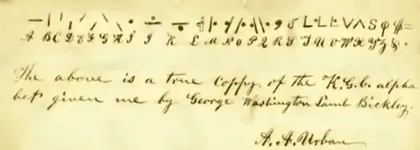 A B C D E F G H I J K L M N O P Q R S T U V W X Y Z &.
The above is a true Coppy of the K.G.C. alpha
bet given me by George Washington Lamb Bickley.
A. A. Urban